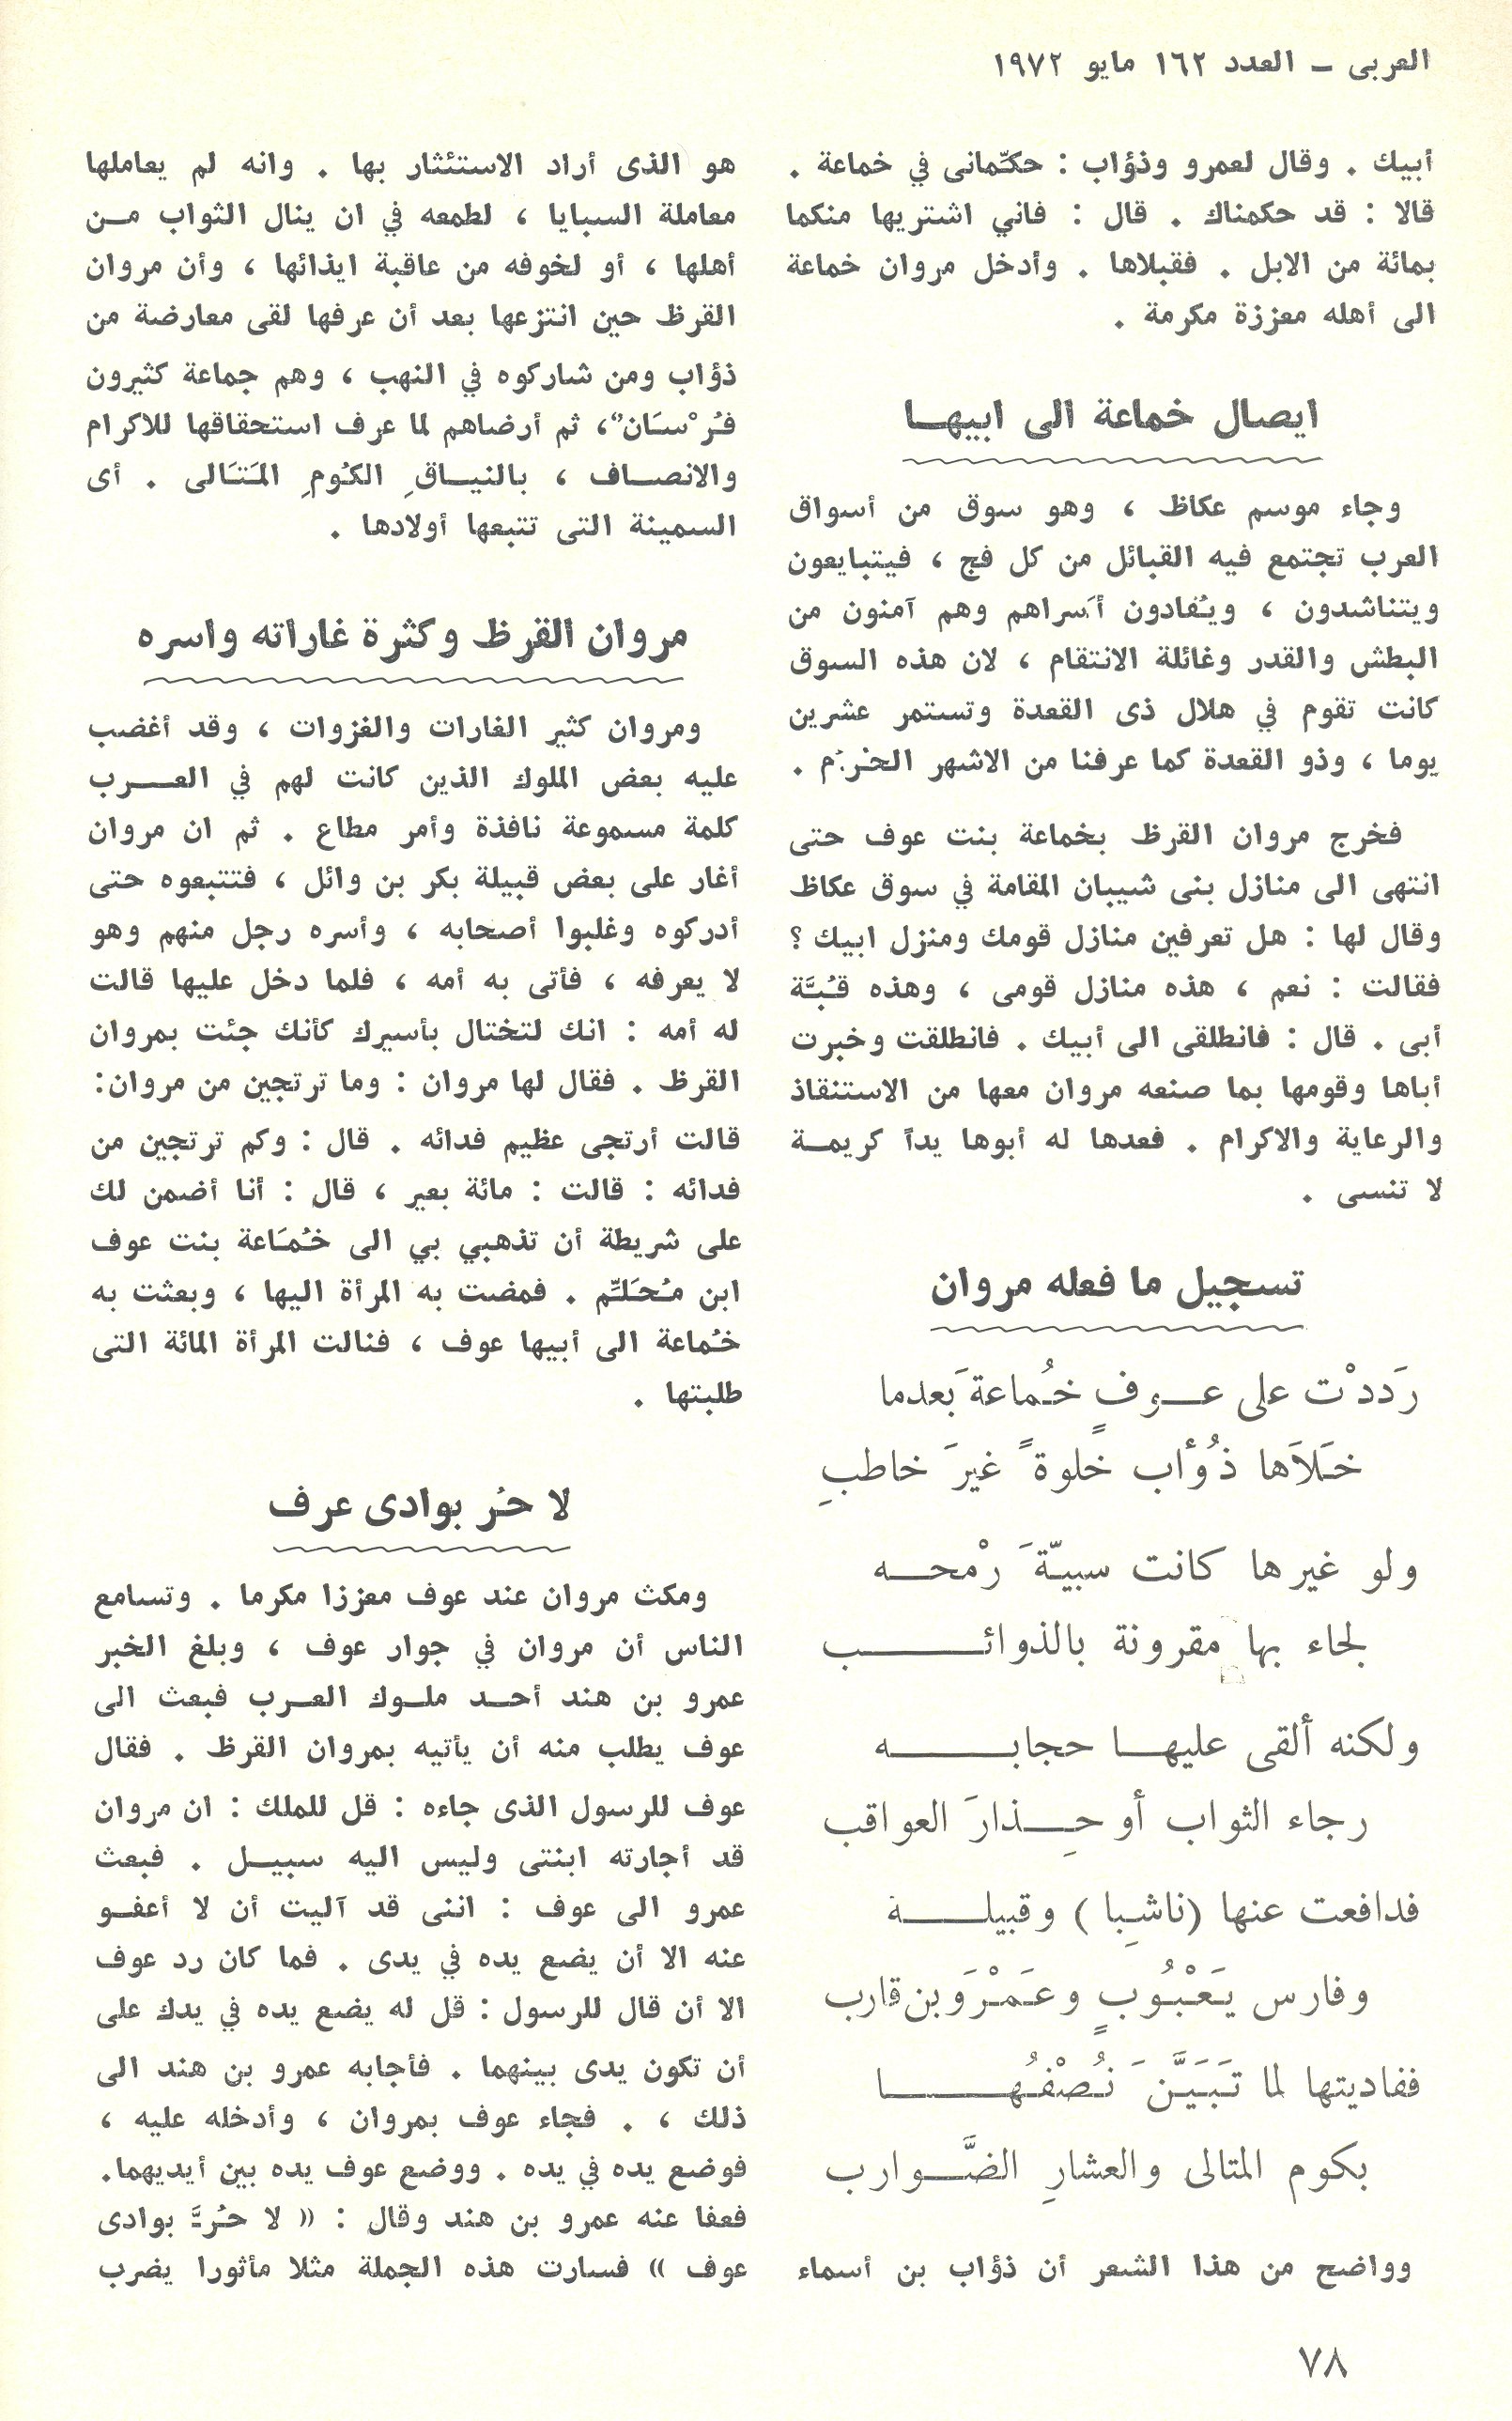 العربى ـ العدد ١٦٢ مايو ١٩٧٢
أبيك . وقال لعمرو وذؤاب : حكّمانى في خماعة .
قالا : قد حكمناك . قال : فاني اشتريها منكما
بمائة من الابل . فقبلاها . وأدخل مروان خماعة
الى أهله معززة مكرمة .
ايصال خماعة الى ابيهـا
وجاء موسم عكاظ ، وهو سوق من أسواق
العرب تجتمع فيه القبائل من كل فج ، فيتبايعون
ويتناشدون ، ويُفادون أَسراهم وهم آمنون من
البطش والغدر وغائلة الانتقام ، لان هذه السوق
كانت تقوم في هلال ذى القعدة وتستمر عشرين
يوما ، وذو القعدة كما عرفنا من الاشهر الحرُم .
فخرج مروان القرظ بخماعة بنت عوف حتى
انتهى الى منازل بنى شيبان المقامة في سوق عكاظ
وقال لها : هل تعرفين منازل قومك ومنزل ابيك ؟
فقالت : نعم ، هذه منازل قومى ، وهذه قُبَّة
أبى . قال : فانطلقى الى أبيك . فانطلقت وخبرت
أباها وقومها بما صنعه مروان معها من الاستنقاذ
والرعاية والاكرام . فعدها له أبوها يداً كريمـة
لا تنسى .
تسجيل ما فعله مروان
رَددْت على عـوفٍ خُماعةَ بعدما
خَلاَها ذُؤاب خلوةً غيرَ خاطبِ
ولو غيرها كانت سبيّةَ رْمحـه
لجاء بها مقرونة بالذوائـب
ولكنه ألقى عليهـا حجابـه
رجاء الثواب أو حِـذارَ العواقب
فدافعت عنها (ناشبِا ) وقبيلـة
وفارس يَعْبُوبٍ وعَمْرَو بن قارب
ففاديتها لما تَبَيَّنَ نُصْفُهـا
بكوم المتالى والعشارِ الضَّـوارب
وواضح من هذا الشعر أن ذؤاب بن أسماء
هو الذى أراد الاستئثار بها . وانه لم يعاملها
معاملة السبايا ، لطمعه في ان ينال الثواب مـن
أهلها ، أو لخوفه من عاقبة ايذائها ، وأن مروان
القرظ حين انتزعها بعد أن عرفها لقى معارضة من
ذؤاب ومن شاركوه في النهب ، وهم جماعة كثيرون
فُرْسَانٌ، ثم أرضاهم لما عرف استحقاقها للاكرام
والانصـاف ، بالنيـاقِ الكُومِ المَتَالى . أى
السمينة التى تتبعها أولادها .
مروان القرظ وكثرة غاراته واسره
ومروان كثير الغارات والغزوات ، وقد أغضب
عليه بعض الملوك الذين كانت لهم في العـرب
كلمة مسموعة نافذة وأمر مطاع . ثم ان مروان
أغار على بعض قبيلة بكر بن وائل ، فتتبعوه حتى
أدركوه وغلبوا أصحابه ، وأسره رجل منهم وهو
لا يعرفه ، فأتى به أمه ، فلما دخل عليها قالت
له أمه : انك لتختال بأسيرك كأنك جئت بمروان
القرظ . فقال لها مروان : وما ترتجين من مروان:
قالت أرتجى عظيم فدائه . قال : وكم ترتجين من
فدائه : قالت : مائة بعير ، قال : أنا أضمن لك
على شريطة أن تذهبي بي الى خُمَاعة بنت عوف
ابن مُحَلِّم . فمضت به المرأة اليها ، وبعثت به
خُماعة الى أبيها عوف ، فنالت المرأة المائة التى
طلبتها .
لا حُر بوادى عرف
ومكث مروان عند عوف معززا مكرما . وتسامع
الناس أن مروان في جوار عوف ، وبلغ الخبر
عمرو بن هند أحـد ملـوك العـرب فبعث الى
عوف يطلب منه أن يأتيه بمروان القرظ . فقال
عوف للرسول الذى جاءه : قل للملك : ان مروان
قد أجارته ابنتى وليس اليه سبيـل . فبعث
عمرو الى عوف : اننى قد آليت أن لا أعفـو
عنه الا أن يضع يده في يدى . فما كان رد عوف
الا أن قال للرسول : قل له يضع يده في يدك على
أن تكون يدى بينهما . فأجابه عمرو بن هند الى
ذلك ، . فجاء عوف بمروان ، وأدخله عليه ،
فوضع يده في يده . ووضع عوف يده بين أيديهما.
فعفا عنه عمرو بن هند وقال : « لا حُرَّ بوادى
عوف » فسارت هذه الجملة مثلا مأثورا يضرب
٧٨